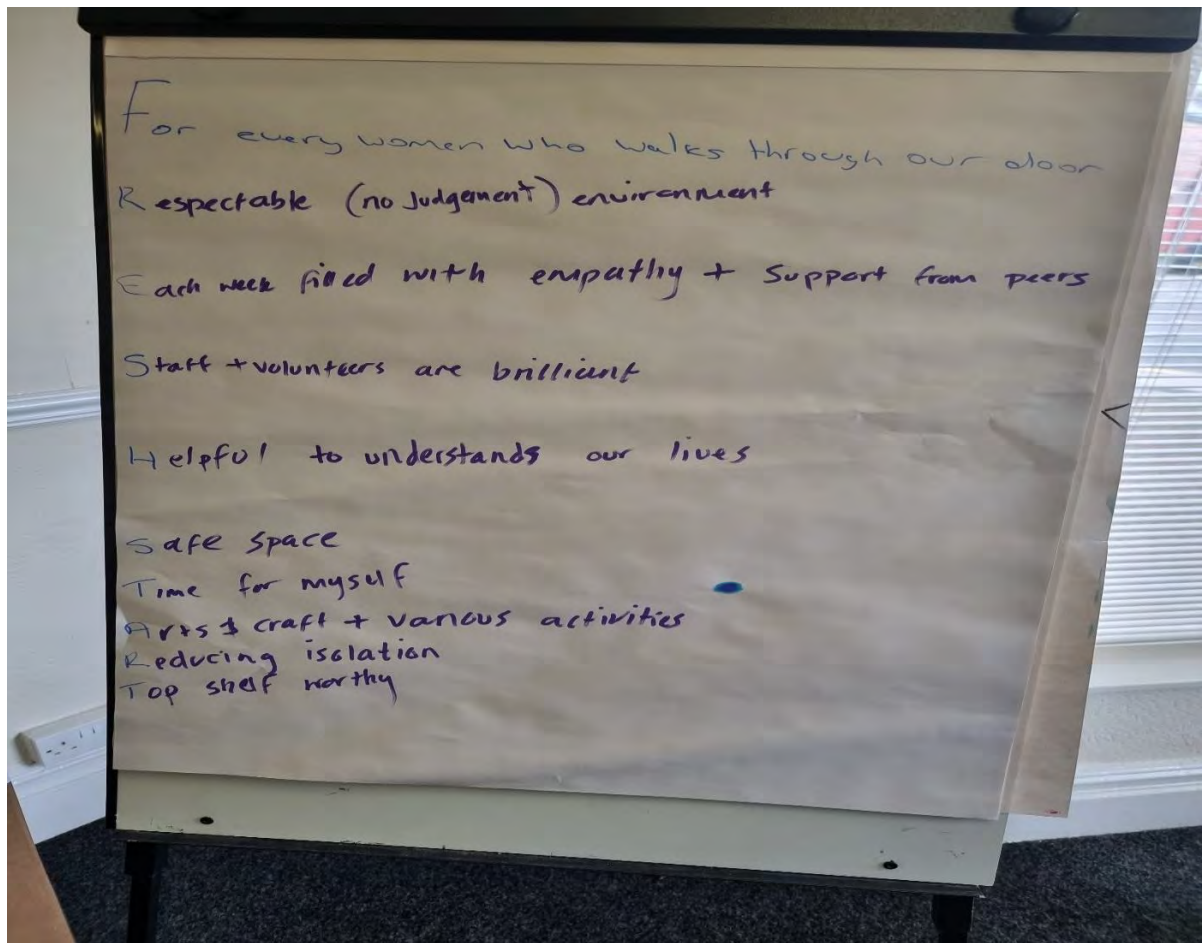 For every women who walks through our door
Respectable (no Judgement) environment
Each week filled with empathy + Support from peers
Staff + volunteers are brilliant
Helpful to understands our lives
Safe space
Time for myself
Arts & craft + various activities
Reducing isolation
Top shelf worthy